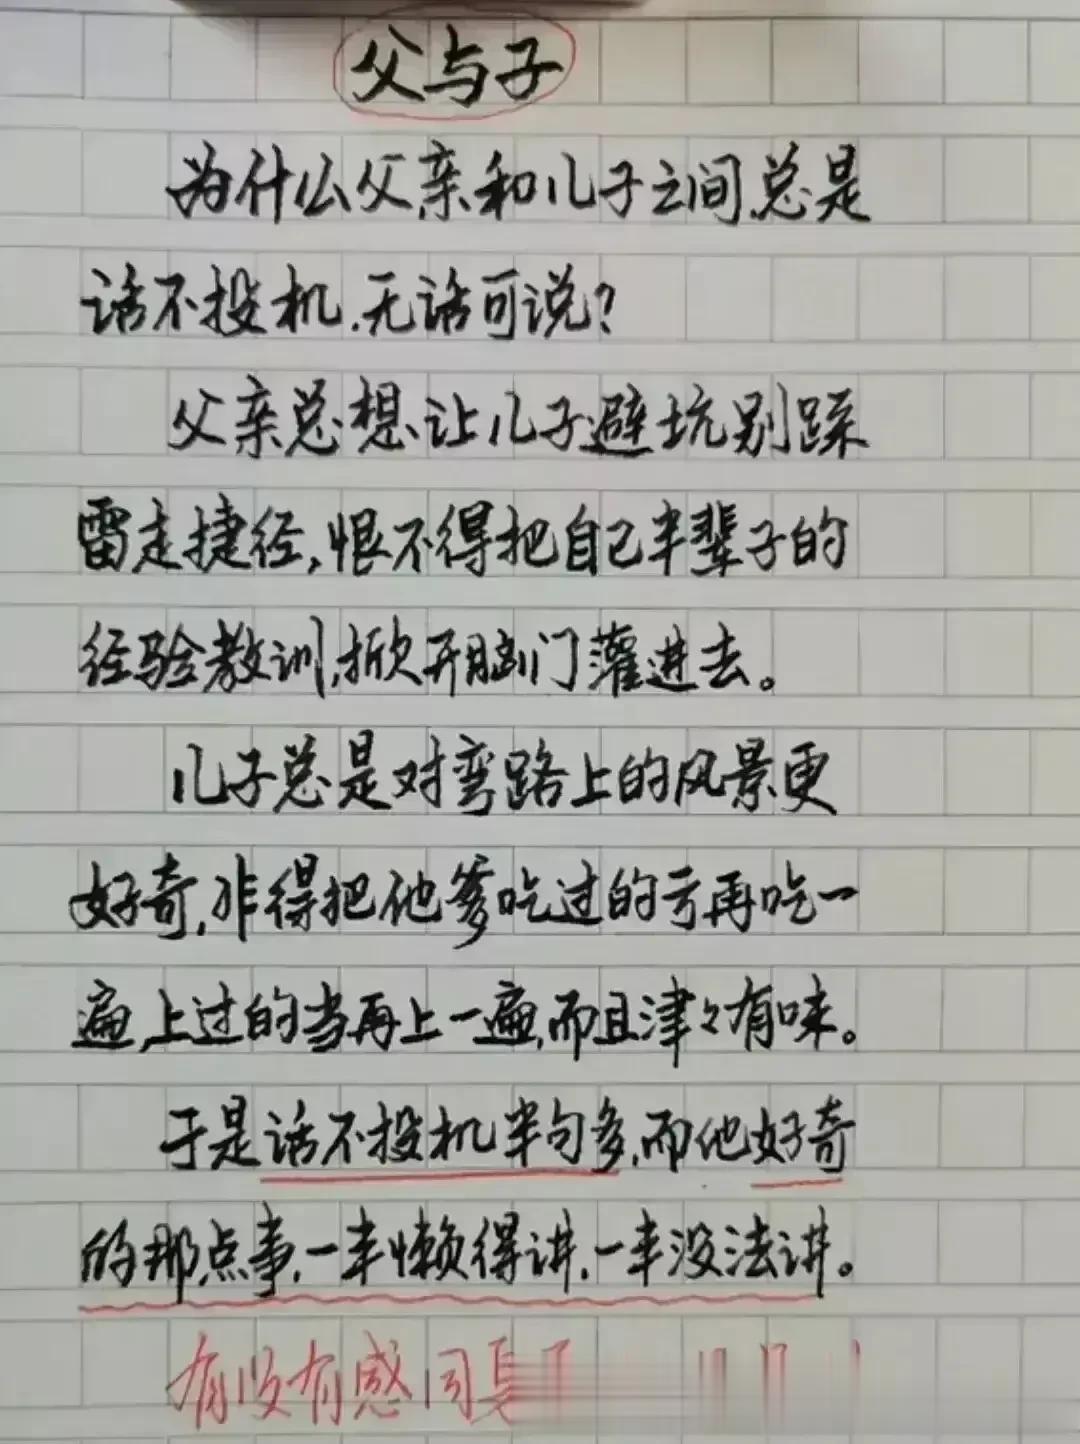 父与子
为什么父亲和儿子之间总是
话不投机.无话可说?
父亲总想让儿子避坑别踩
雷走捷径,恨不得把自己半辈子的
经验教训,掀开脑门灌进去。
儿子总是对弯路上的风景更
好奇,非得把他爹吃过的亏再吃一
遍,上过的当再上一遍,而且津々有味。
于是话不投机半句多,而他好奇
的那点事,一半懒得讲,一半没法讲。
有没有感同身